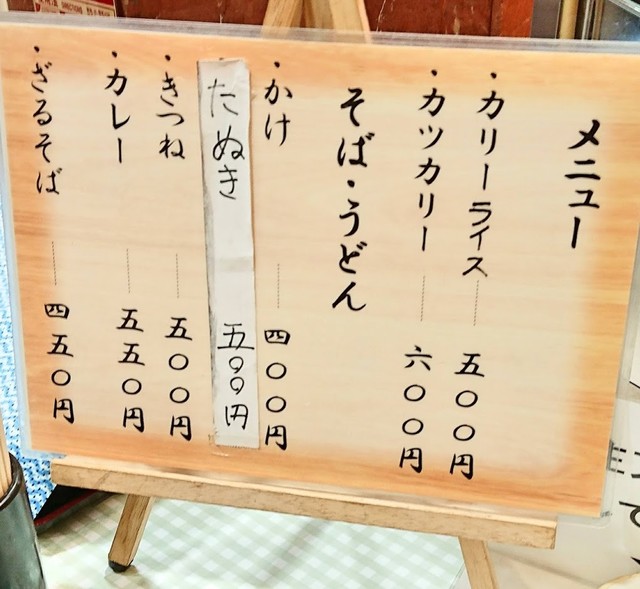 メニュー
・カリーライス 五〇〇円
・カツカリー 六〇〇円
そば・うどん
・かけ 四〇〇円
・たぬき 五〇〇円
・きつね 五〇〇円
・カレー 五五〇円
・ざるそば 四五〇円